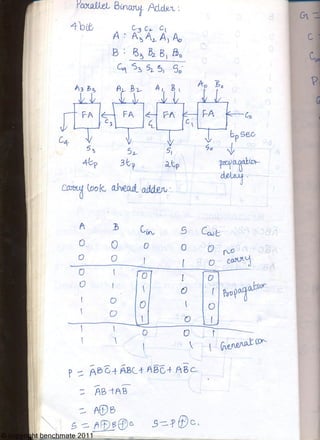 Parallel Binary Adder:
4 bit C3 C2 C1
A : A3 A2 A1 A0
B : B3 B2 B1 B0
C4 S3 S2 S1 S0
A3 B3 A2 B2 A1 B1 A0 B0
FA FA FA FA C0
C4 C3 C1 tp sec
S3 S2 S1 S0
4tp 3tp 2tp propagation
delay
Carry look ahead adder:
A B Cin S Cout
0 0 0 0 0 no
0 0 1 1 0 carry
0 1 0 1 0
0 1 1 0 1 Propagation
1 0 0 1 0
1 0 1 0 1
1 1 0 0 1
1 1 1 1 1 Generation
P = A̅BC̅ + A̅BC + AB̅C̅ + AB̅C
= A̅B + AB̅
= A⊕B
S = A⊕B⊕C S = P⊕C.
© copyright benchmate 2011